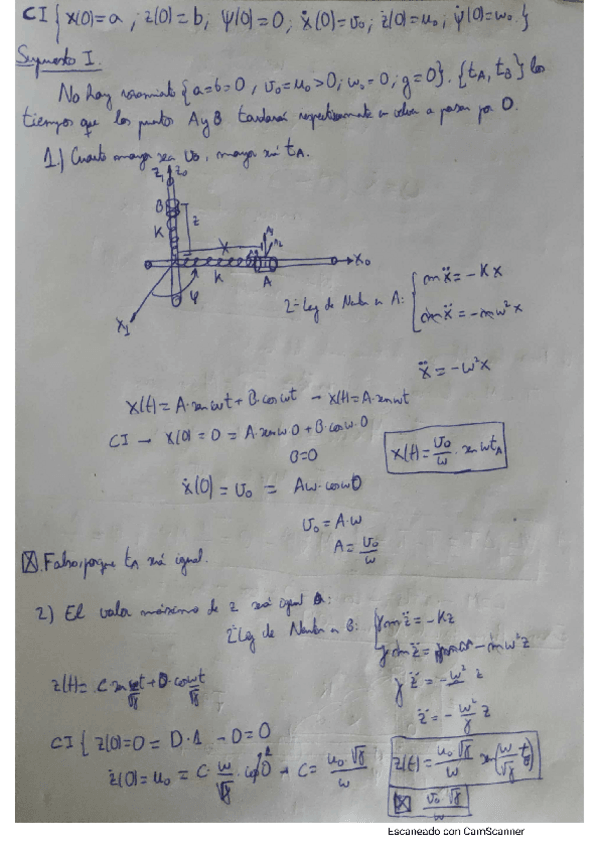 CI { x(0)=a ; z(0)=b; ψ(0)=0; ẋ(0)=υ₀; ż(0)=u₀; ψ̇(0)=ω₀ }
Supuesto I.
No hay rozamiento {a=b=0, υ₀=u₀>0; ω₀=0; g=0}. {t_A, t_B} los
tiempos que los puntos A y B tardarán respectivamente en volver a pasar por O.
1.) Cuanto mayor sea υ₀, mayor será t_A.
z₁ z₀
B
z
K
x
A
K
x₀
ψ
x₁
2ª Ley de Newton en A: { mẍ = -Kx
mẍ = -mω²x
ẍ = -ω²x
x(t) = A·sen ωt + B·cos ωt → x(t) = A·sen ωt
CI → x(0) = 0 = A·sen ω0 + B·cos ω·0
B=0
x(t) = υ₀/ω · sen ωt_A
ẋ(0) = υ₀ = Aω·cos ω0
υ₀ = A·ω
A = υ₀/ω
☒. Falso, porque t_A será igual.
2) El valor máximo de z será igual a:
2ª Ley de Newton en B: { γmz̈ = -Kz
γmz̈ = - mω²z
γz̈ = -ω² z
z(t) = C sen ωt/√γ + D·cos ωt/√γ
z̈ = -ω²/γ z
CI { z(0)=0 = D·1 → D=0
z(t) = u₀√γ/ω sen(ω/√γ t_B)
ż(0)=u₀ = C·ω/√γ · cos 0 → C = u₀·√γ/ω
☒ υ₀√γ/ω
Escaneado con CamScanner